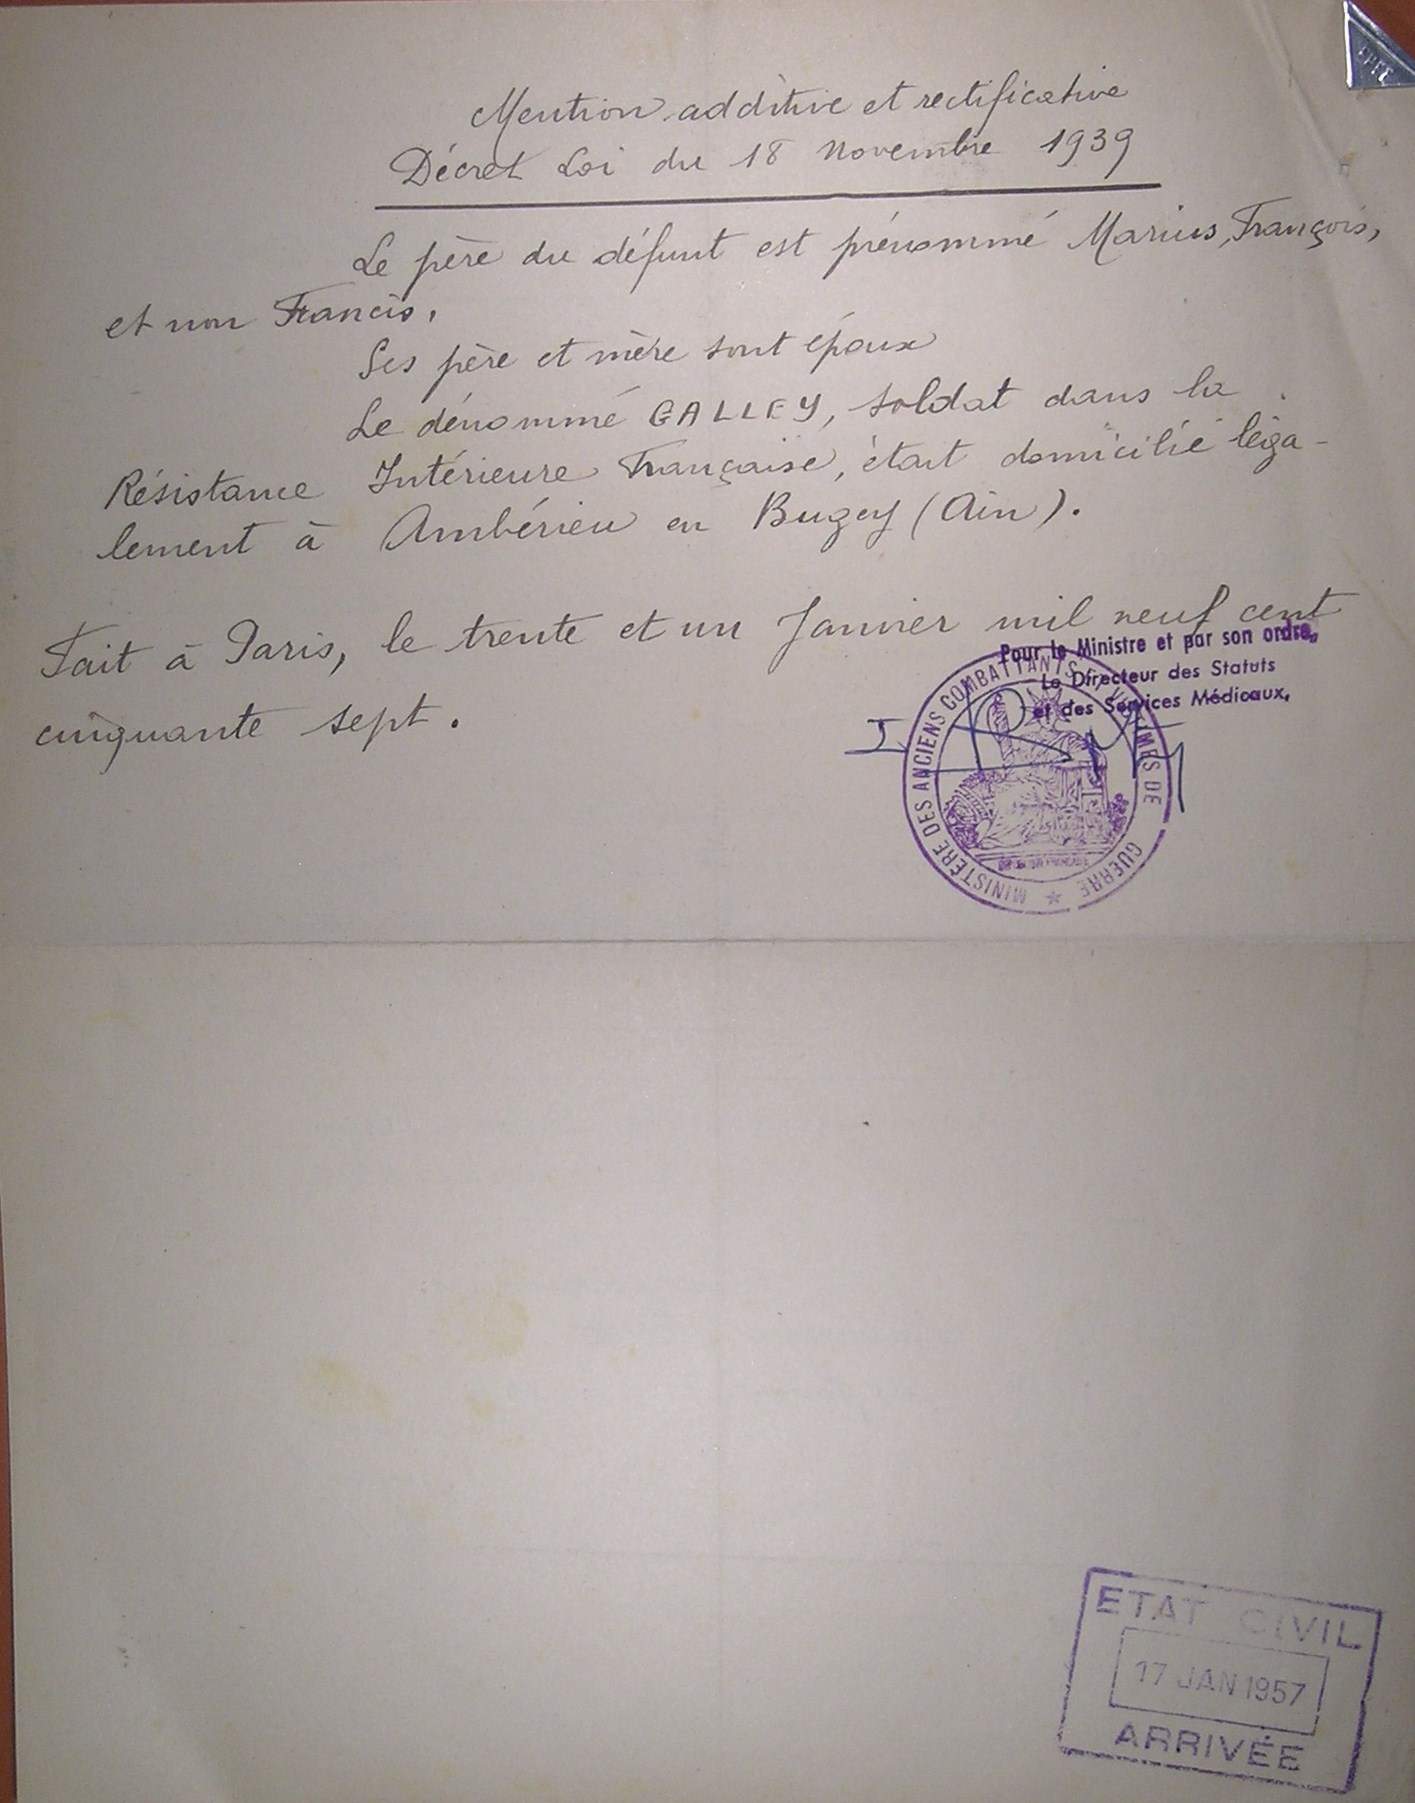 Mention additive et rectificative
Décret Loi du 18 Novembre 1939
Le père du défunt est prénommé Marius, François,
et non Francis.
Ses père et mère sont époux
Le dénommé GALLEY, soldat dans la
Résistance Intérieure Française, était domicilié léga-
lement à Ambérieu en Bugey (Ain).
Fait à Paris, le trente et un Janvier mil neuf cent
cinquante sept.
Pour le Ministre et par son ordre,
Le Directeur des Statuts
et des Services Médicaux,
MINISTÈRE DES ANCIENS COMBATTANTS ET VICTIMES DE GUERRE
ETAT CIVIL
17 JAN 1957
ARRIVÉE